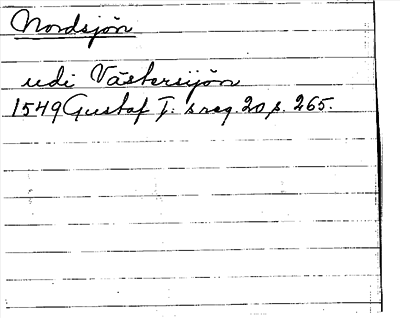 Nordsjön
udi Västersijön
1549 Gustaf I:s reg. 20 p. 265.